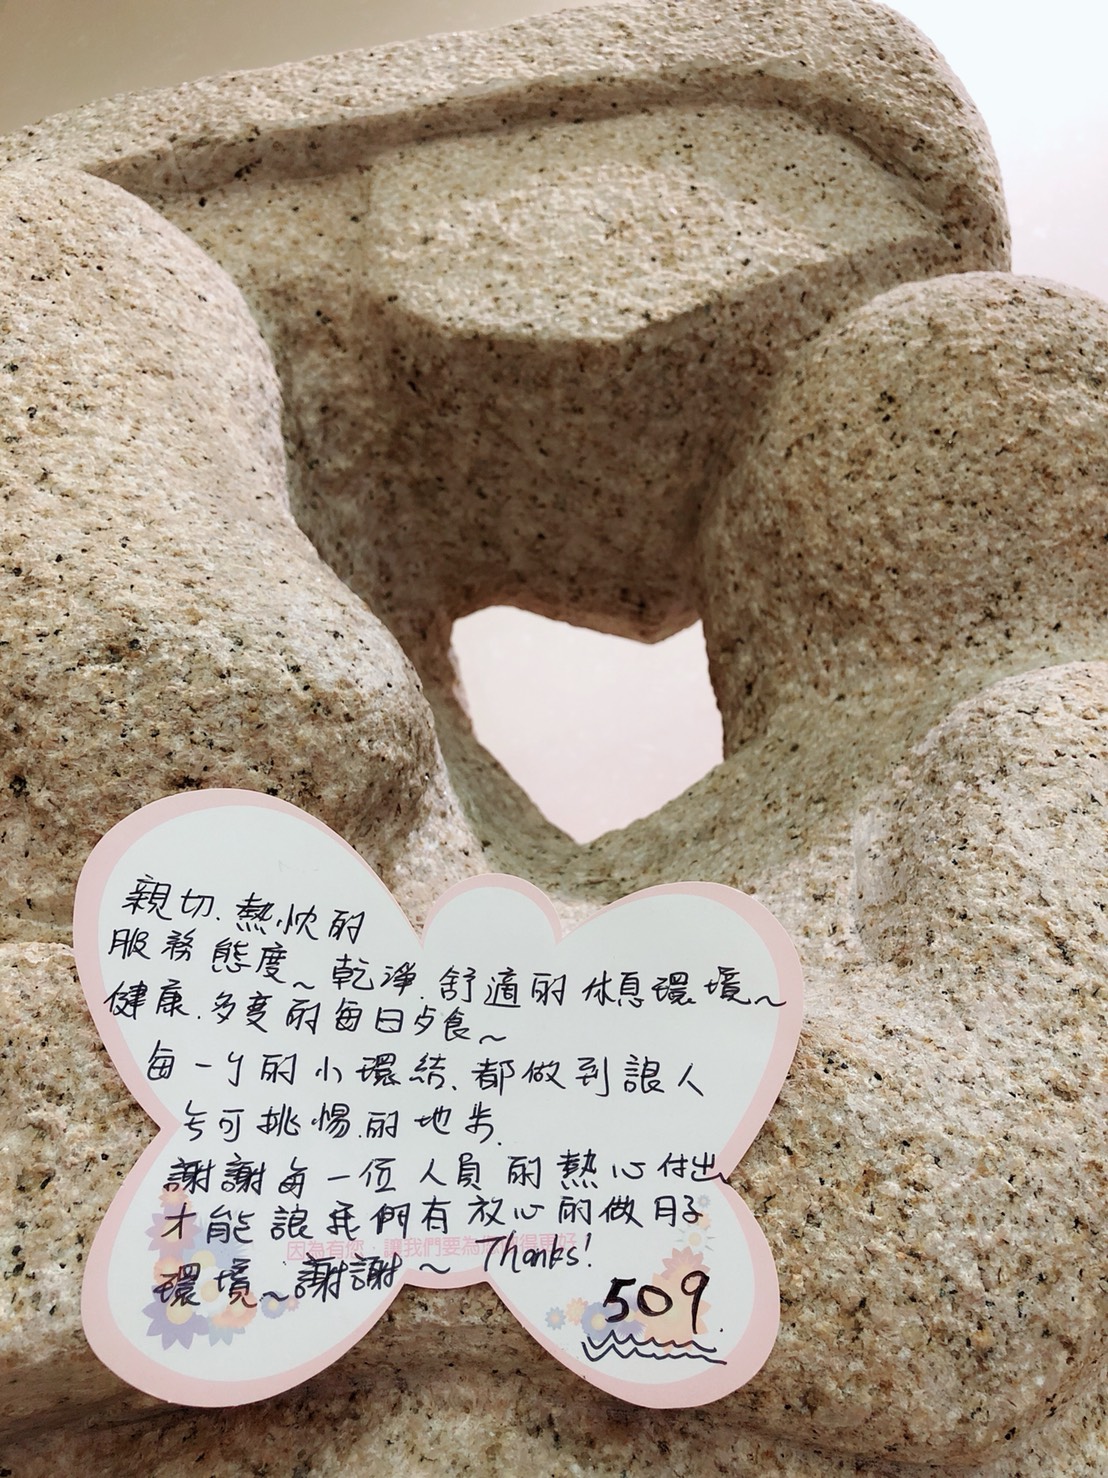 親切.熱忱的
服務態度~乾淨.舒適的休息環境~
健康.多變的每日夕食~
每一ㄘ的小環結、都做到讓人
ㄘ可挑惕的地步.
謝謝每一位人員的熱心付出
才能讓我們有放心的做月子
因為有您，讓我們要為您做得更好！
環境~謝謝~ Thanks!
509.